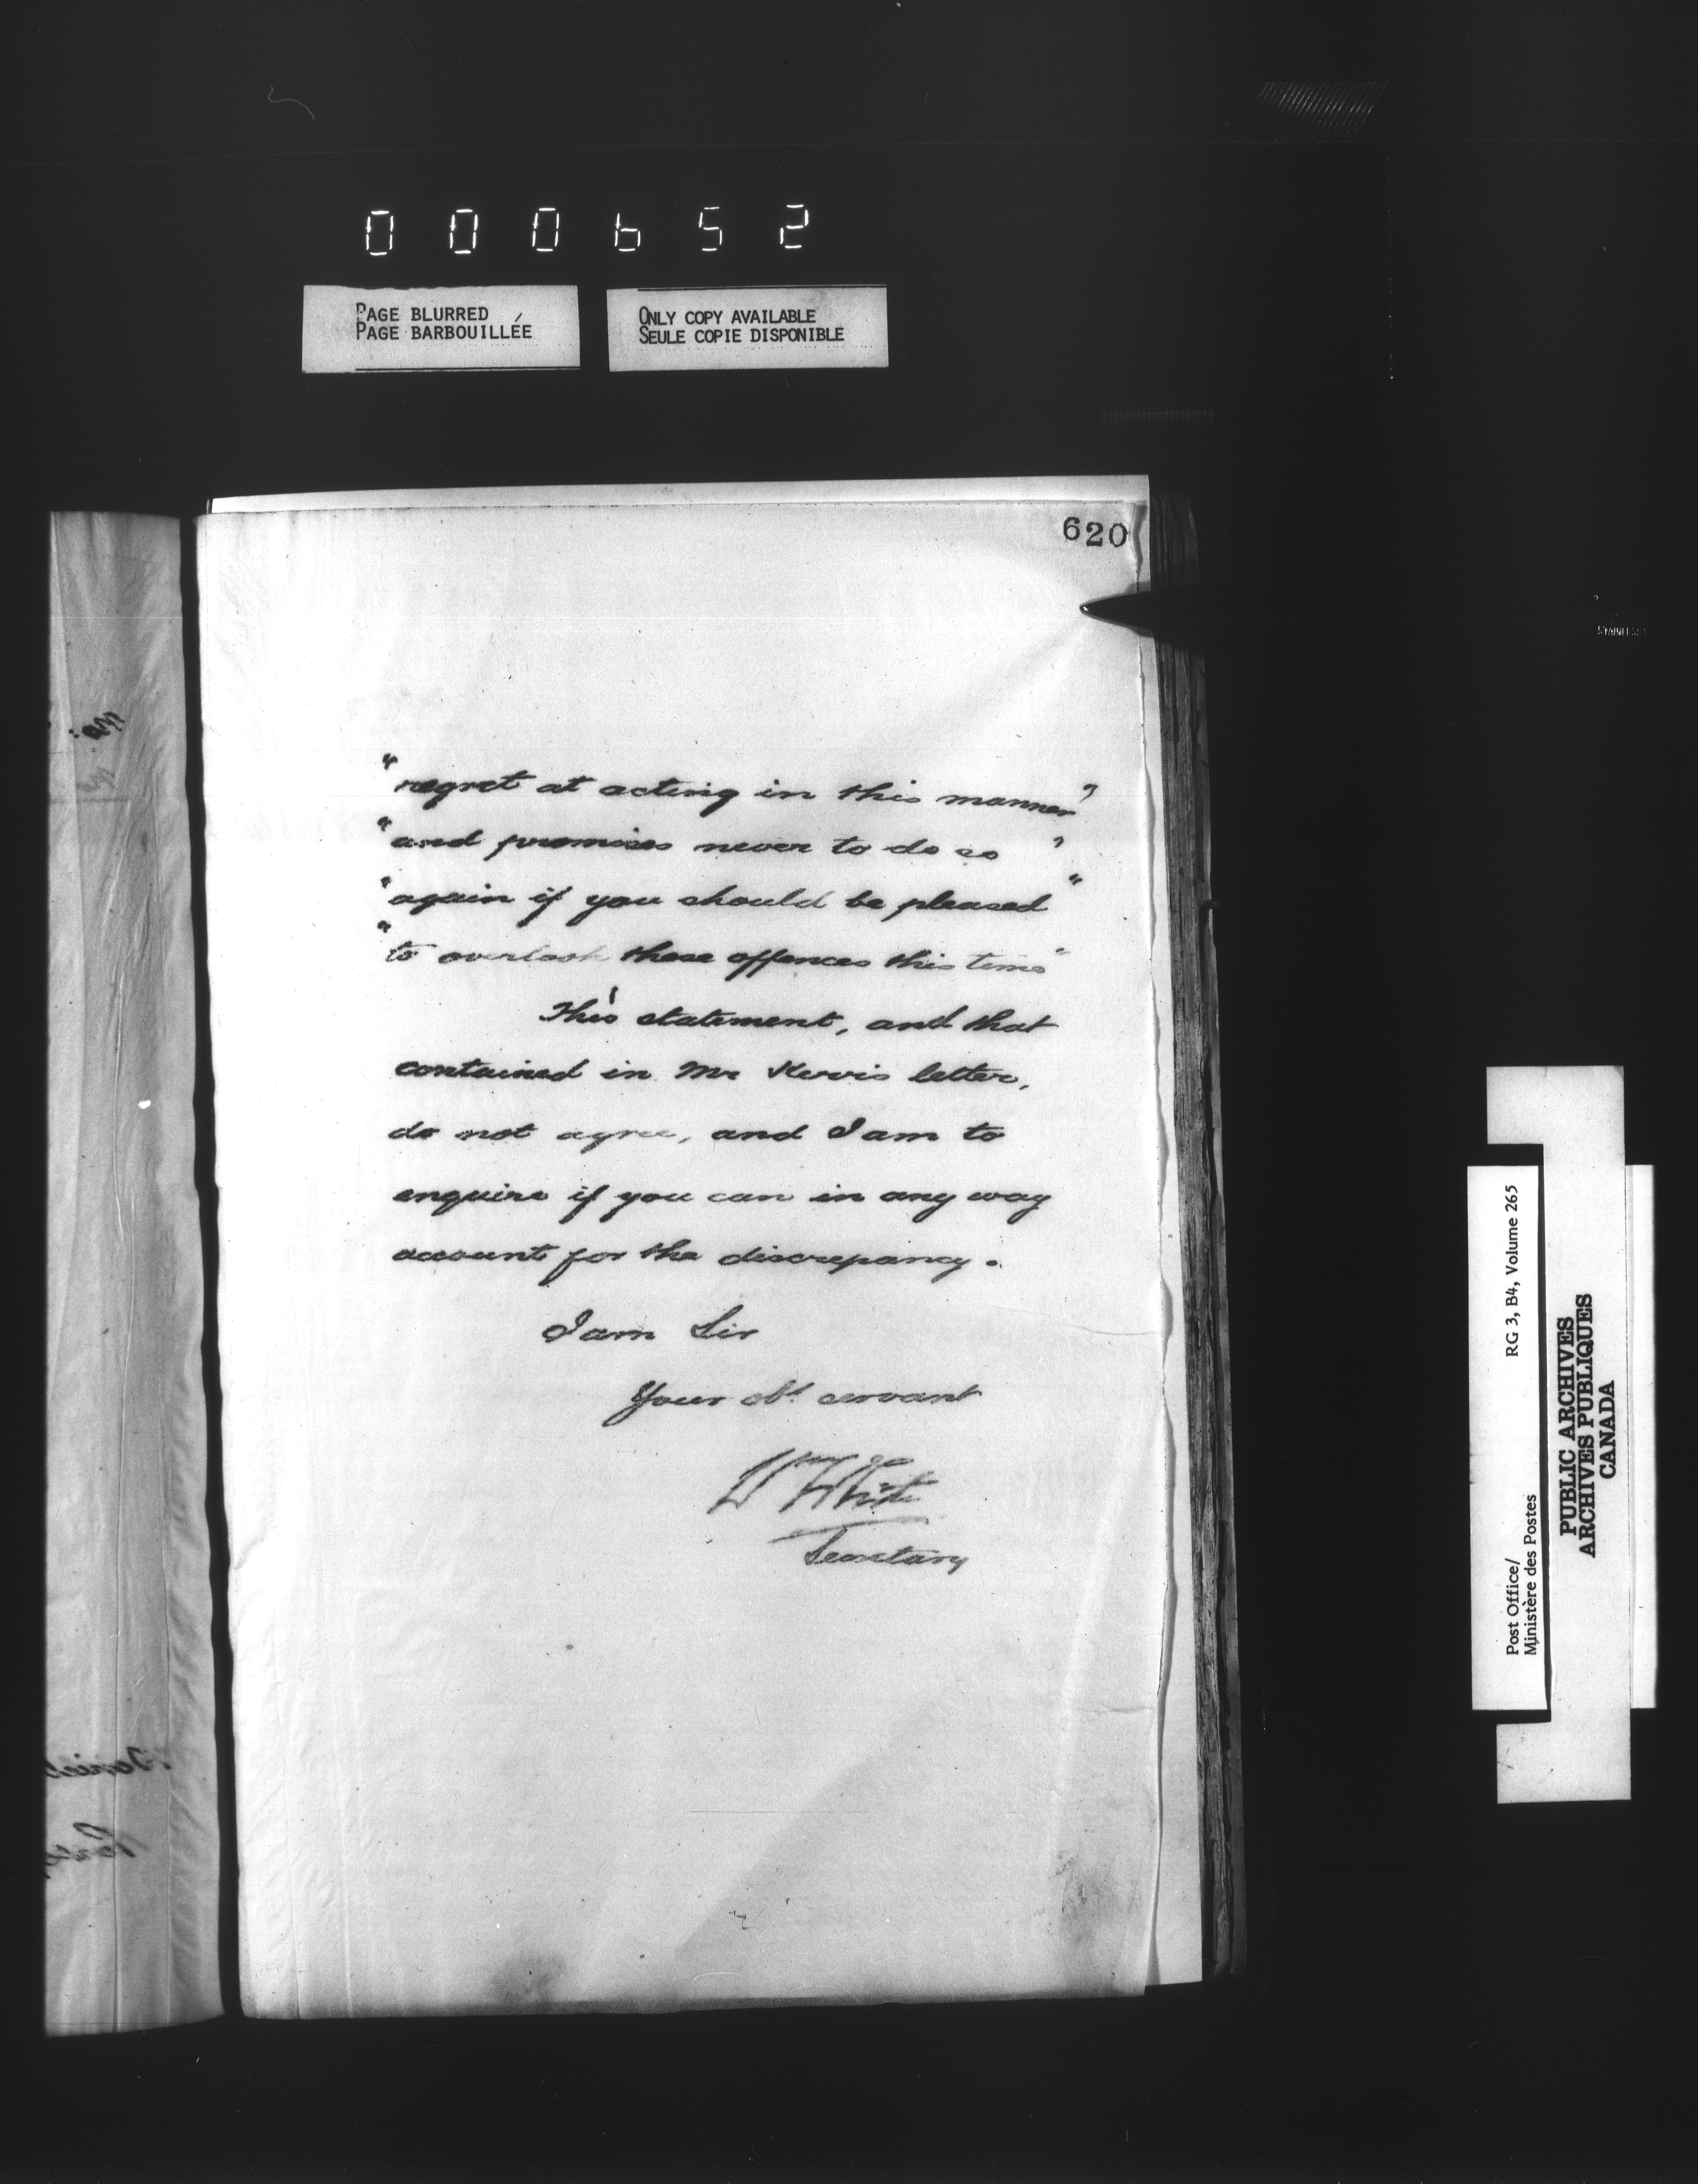 000652
PAGE BLURRED
PAGE BARBOUILLÉE
ONLY COPY AVAILABLE
SEULE COPIE DISPONIBLE
620
"regret at acting in this manner"
"and promises never to do so "
"again if you should be pleased "
"to overlook these offences this time "
This statement, and that
contained in Mr letter,
do not agree, and I am to
enquire if you can in any way
account for the discrepancy.
I am Sir
Your obt servant
Wm White
Secretary
Post Office/
Ministère des Postes
RG 3, B4, Volume 265
PUBLIC ARCHIVES
ARCHIVES PUBLIQUES
CANADA